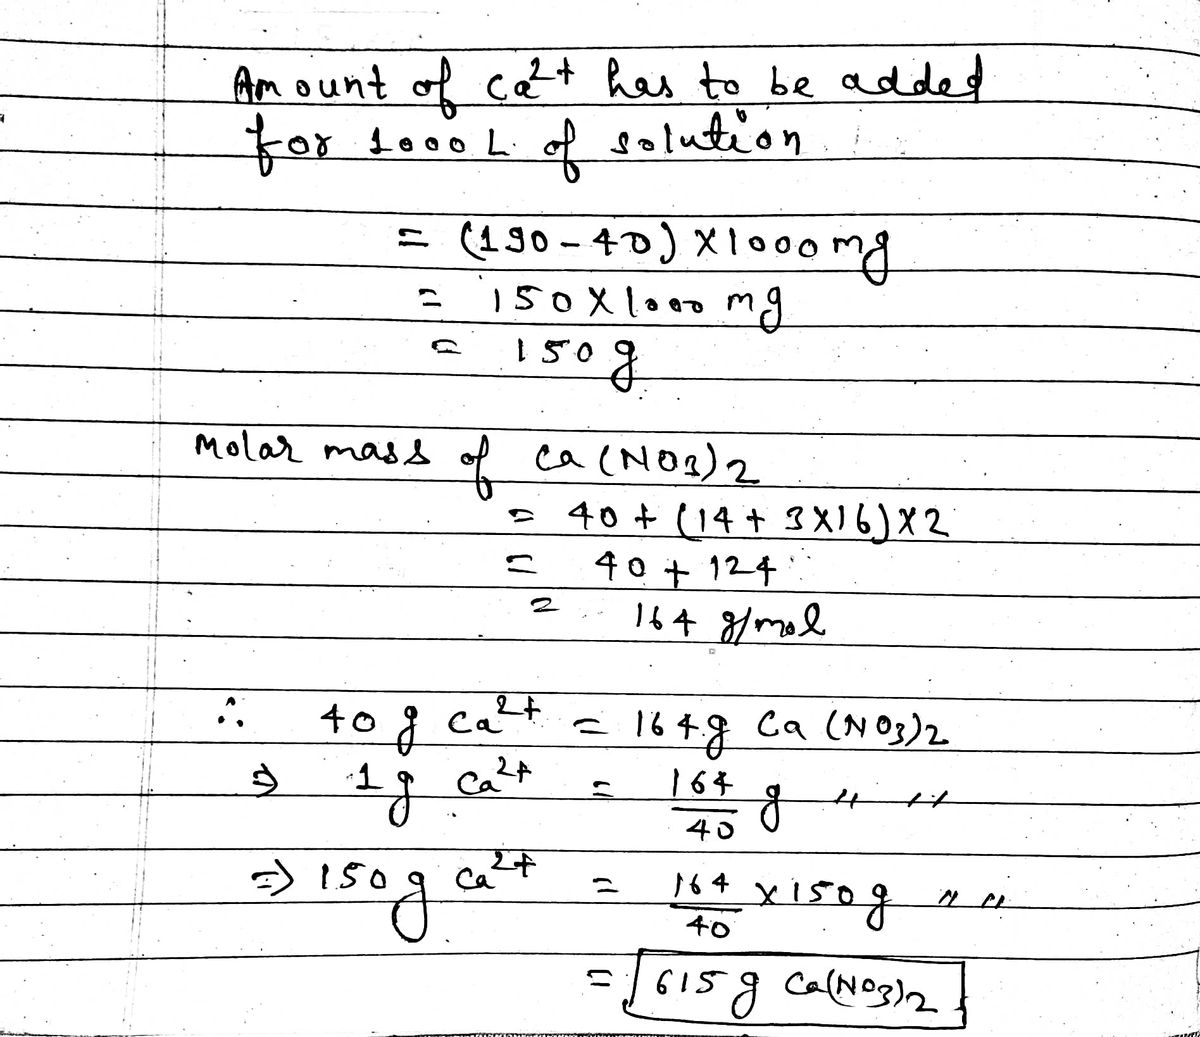 Amount of Ca²⁺ has to be added
for 1000 L of solution
= (190 - 40) × 1000 mg
= 150 × 1000 mg
= 150 g
Molar mass of Ca(NO₃)₂
= 40 + (14 + 3×16) × 2
= 40 + 124
= 164 g/mol
∴ 40 g Ca²⁺ = 164 g Ca(NO₃)₂
⇒ 1 g Ca²⁺ = 164/40 g " "
⇒ 150 g Ca²⁺ = 164/40 × 150 g " "
= 615 g Ca(NO₃)₂